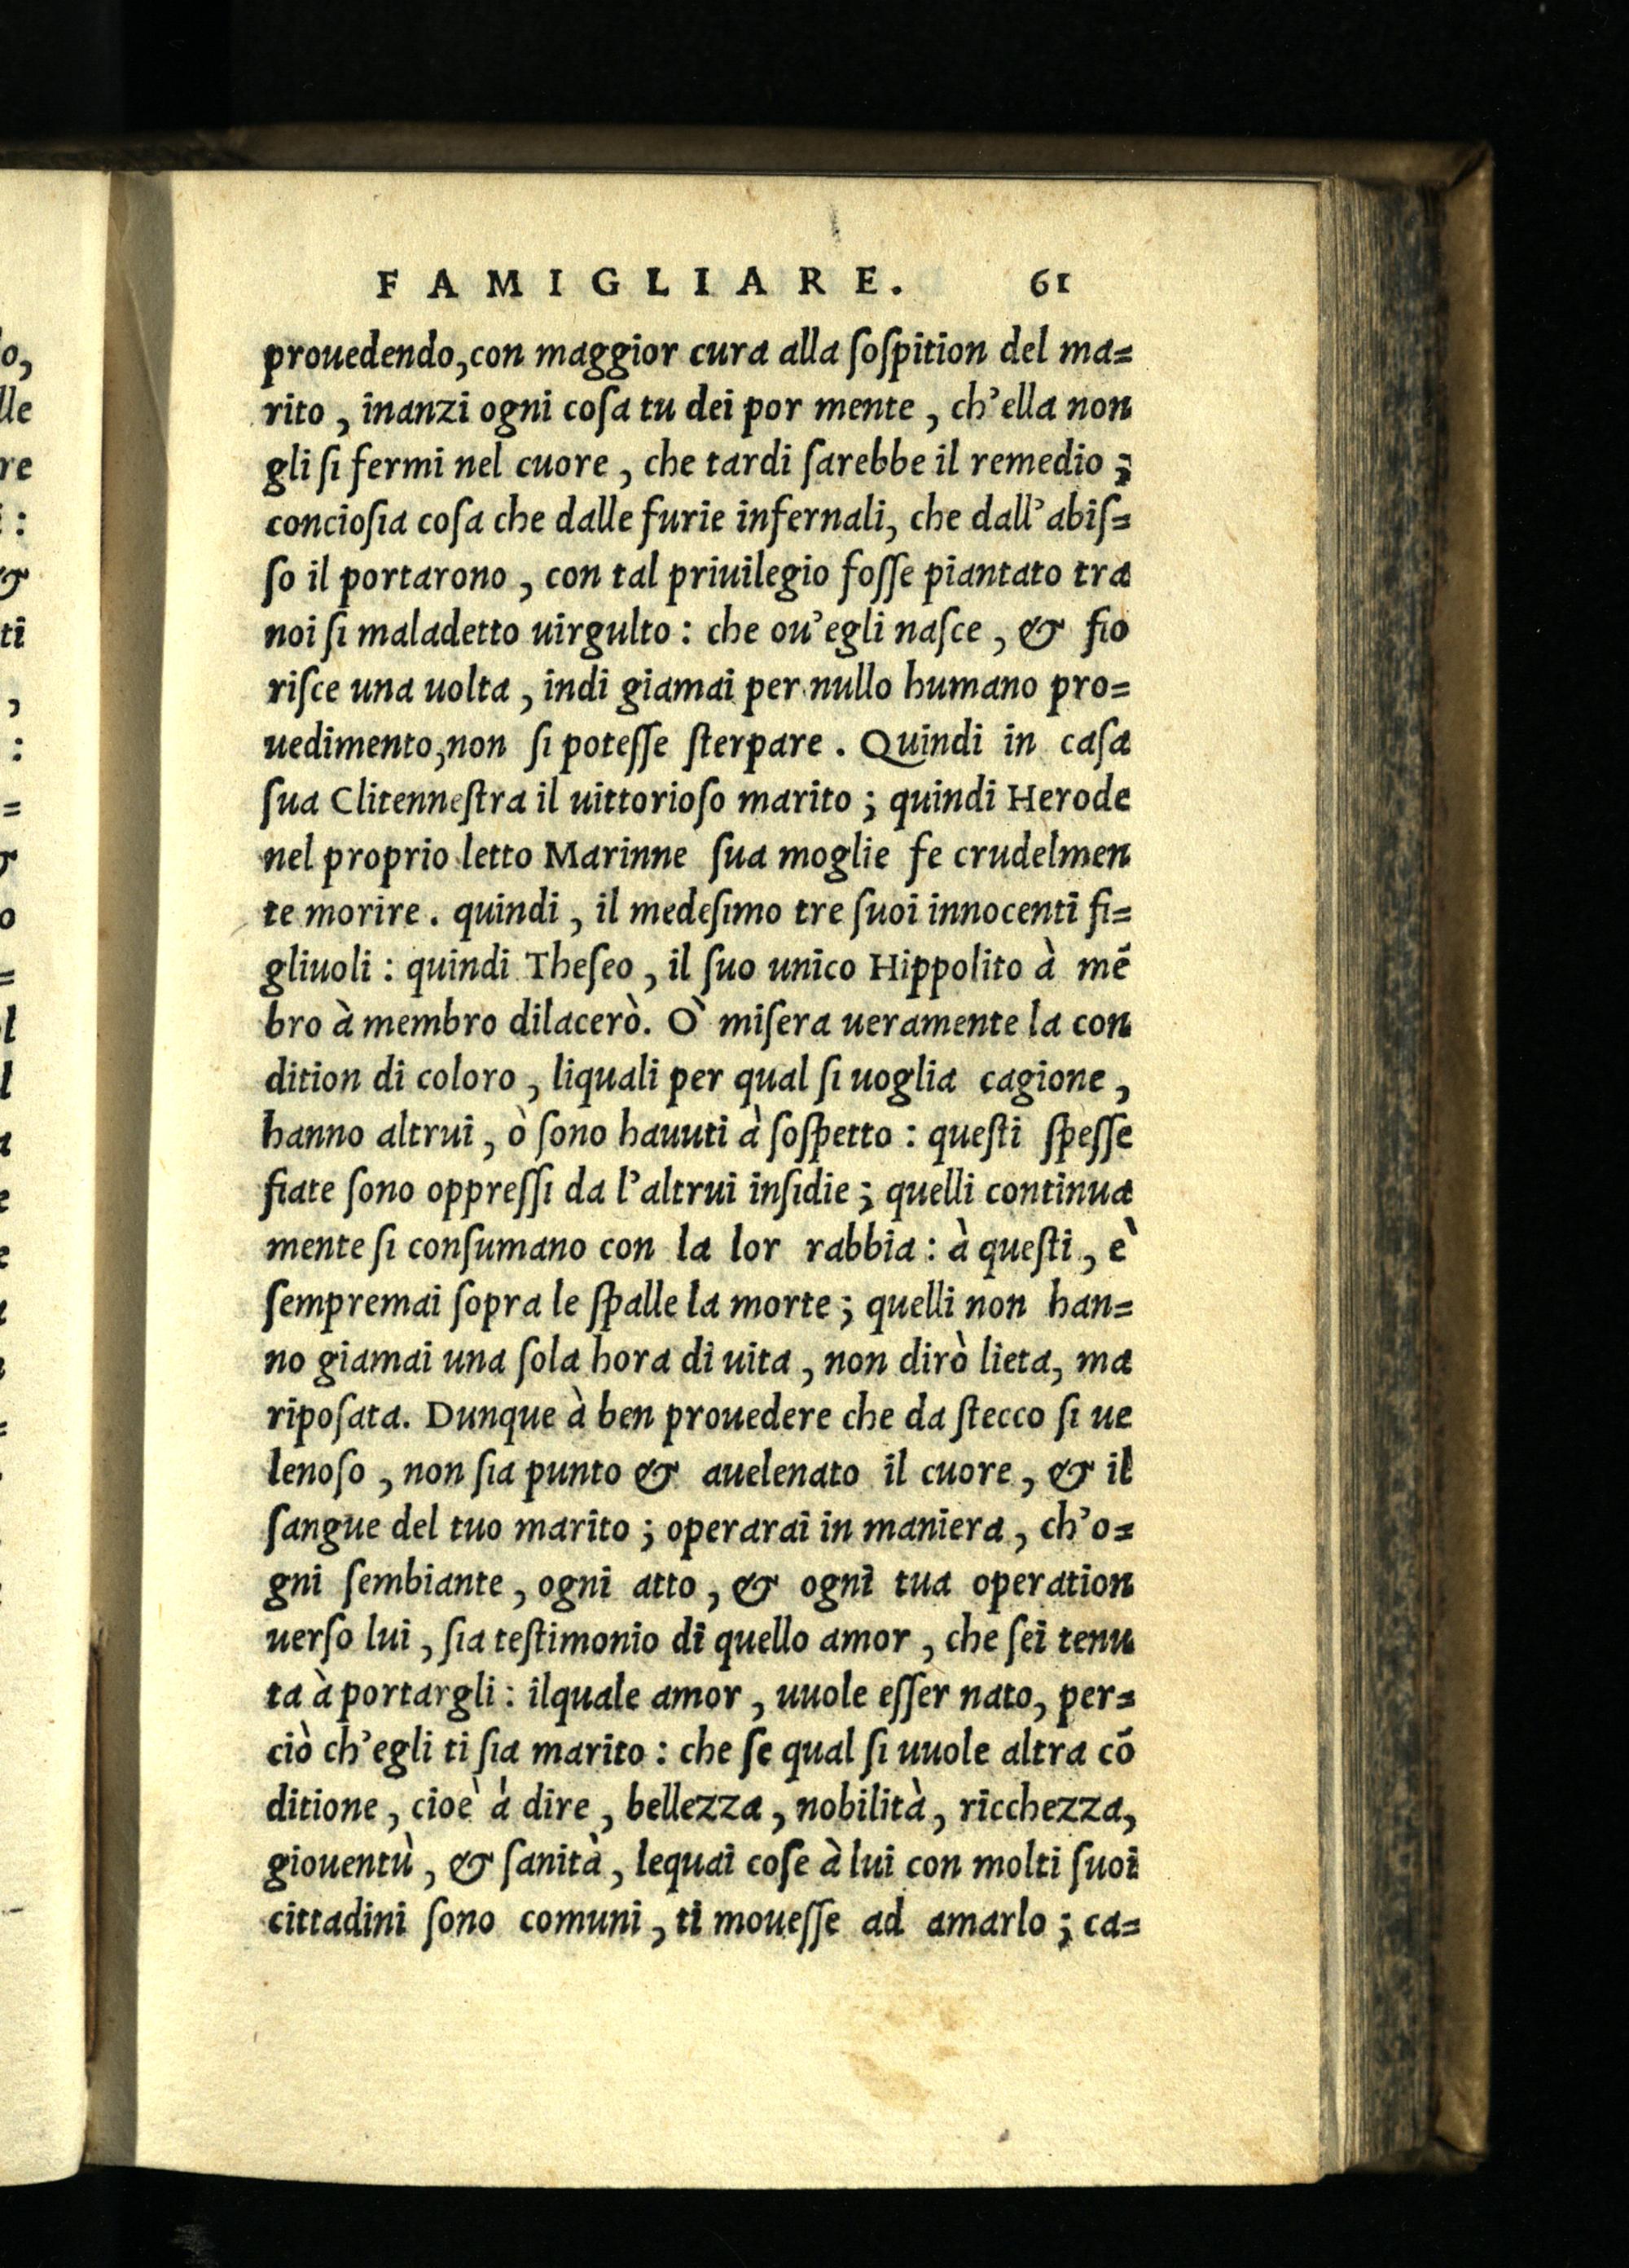 FAMIGLIARE. 61
prouedendo, con maggior cura alla ſoſpition del ma=
rito, inanzi ogni coſa tu dei por mente, ch'ella non
gli ſi fermi nel cuore, che tardi ſarebbe il remedio;
concioſia coſa che dalle furie infernali, che dall'abiſ=
ſo il portarono, con tal priuilegio foſſe piantato tra
noi ſi maladetto uirgulto: che ou'egli naſce, & fio
riſce una uolta, indi giamai per nullo humano pro=
uedimento, non ſi poteſſe ſterpare. Quindi in caſa
ſua Clitenneſtra il uittorioſo marito; quindi Herode
nel proprio letto Marinne ſua moglie fe crudelmen
te morire. quindi, il medeſimo tre ſuoi innocenti fi=
gliuoli: quindi Theſeo, il ſuo unico Hippolito à mē
bro à membro dilacerò. Ò miſera ueramente la con
dition di coloro, liquali per qual ſi uoglia cagione,
hanno altrui, ò ſono hauuti à ſoſpetto: queſti ſpeſſe
fiate ſono oppreſſi da l'altrui inſidie; quelli continua
mente ſi conſumano con la lor rabbia: à queſti, è
ſempremai ſopra le ſpalle la morte; quelli non han=
no giamai una ſola hora di uita, non dirò lieta, ma
ripoſata. Dunque à ben prouedere che da ſtecco ſi ue
lenoſo, non ſia punto & auelenato il cuore, & il
ſangue del tuo marito; operarai in maniera, ch'o=
gni ſembiante, ogni atto, & ogni tua operation
uerſo lui, ſia teſtimonio di quello amor, che ſei tenu
ta à portargli: ilquale amor, uuole eſſer nato, per=
ciò ch'egli ti ſia marito: che ſe qual ſi uuole altra cō
ditione, cioè á dire, bellezza, nobilità, ricchezza,
giouentù, & ſanità, lequai coſe à lui con molti ſuoi
cittadini ſono comuni, ti moueſſe ad amarlo; ca=